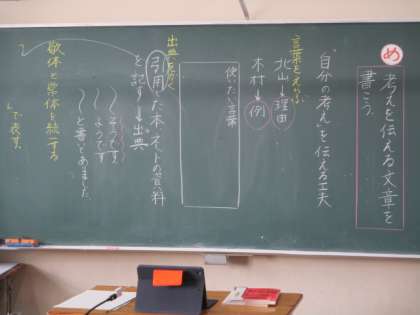 め
考えを伝える文章を
書こう。
"自分の考え"を伝える工夫
言葉をえらぶ
北山→理由
木村→例
使いたい言葉
出典を書く
引用した本、ネットの資料
を記す→出典
〜そうです。
〜ようです。
〜と書いてありました。
敬体と常体を統一する
で表す。